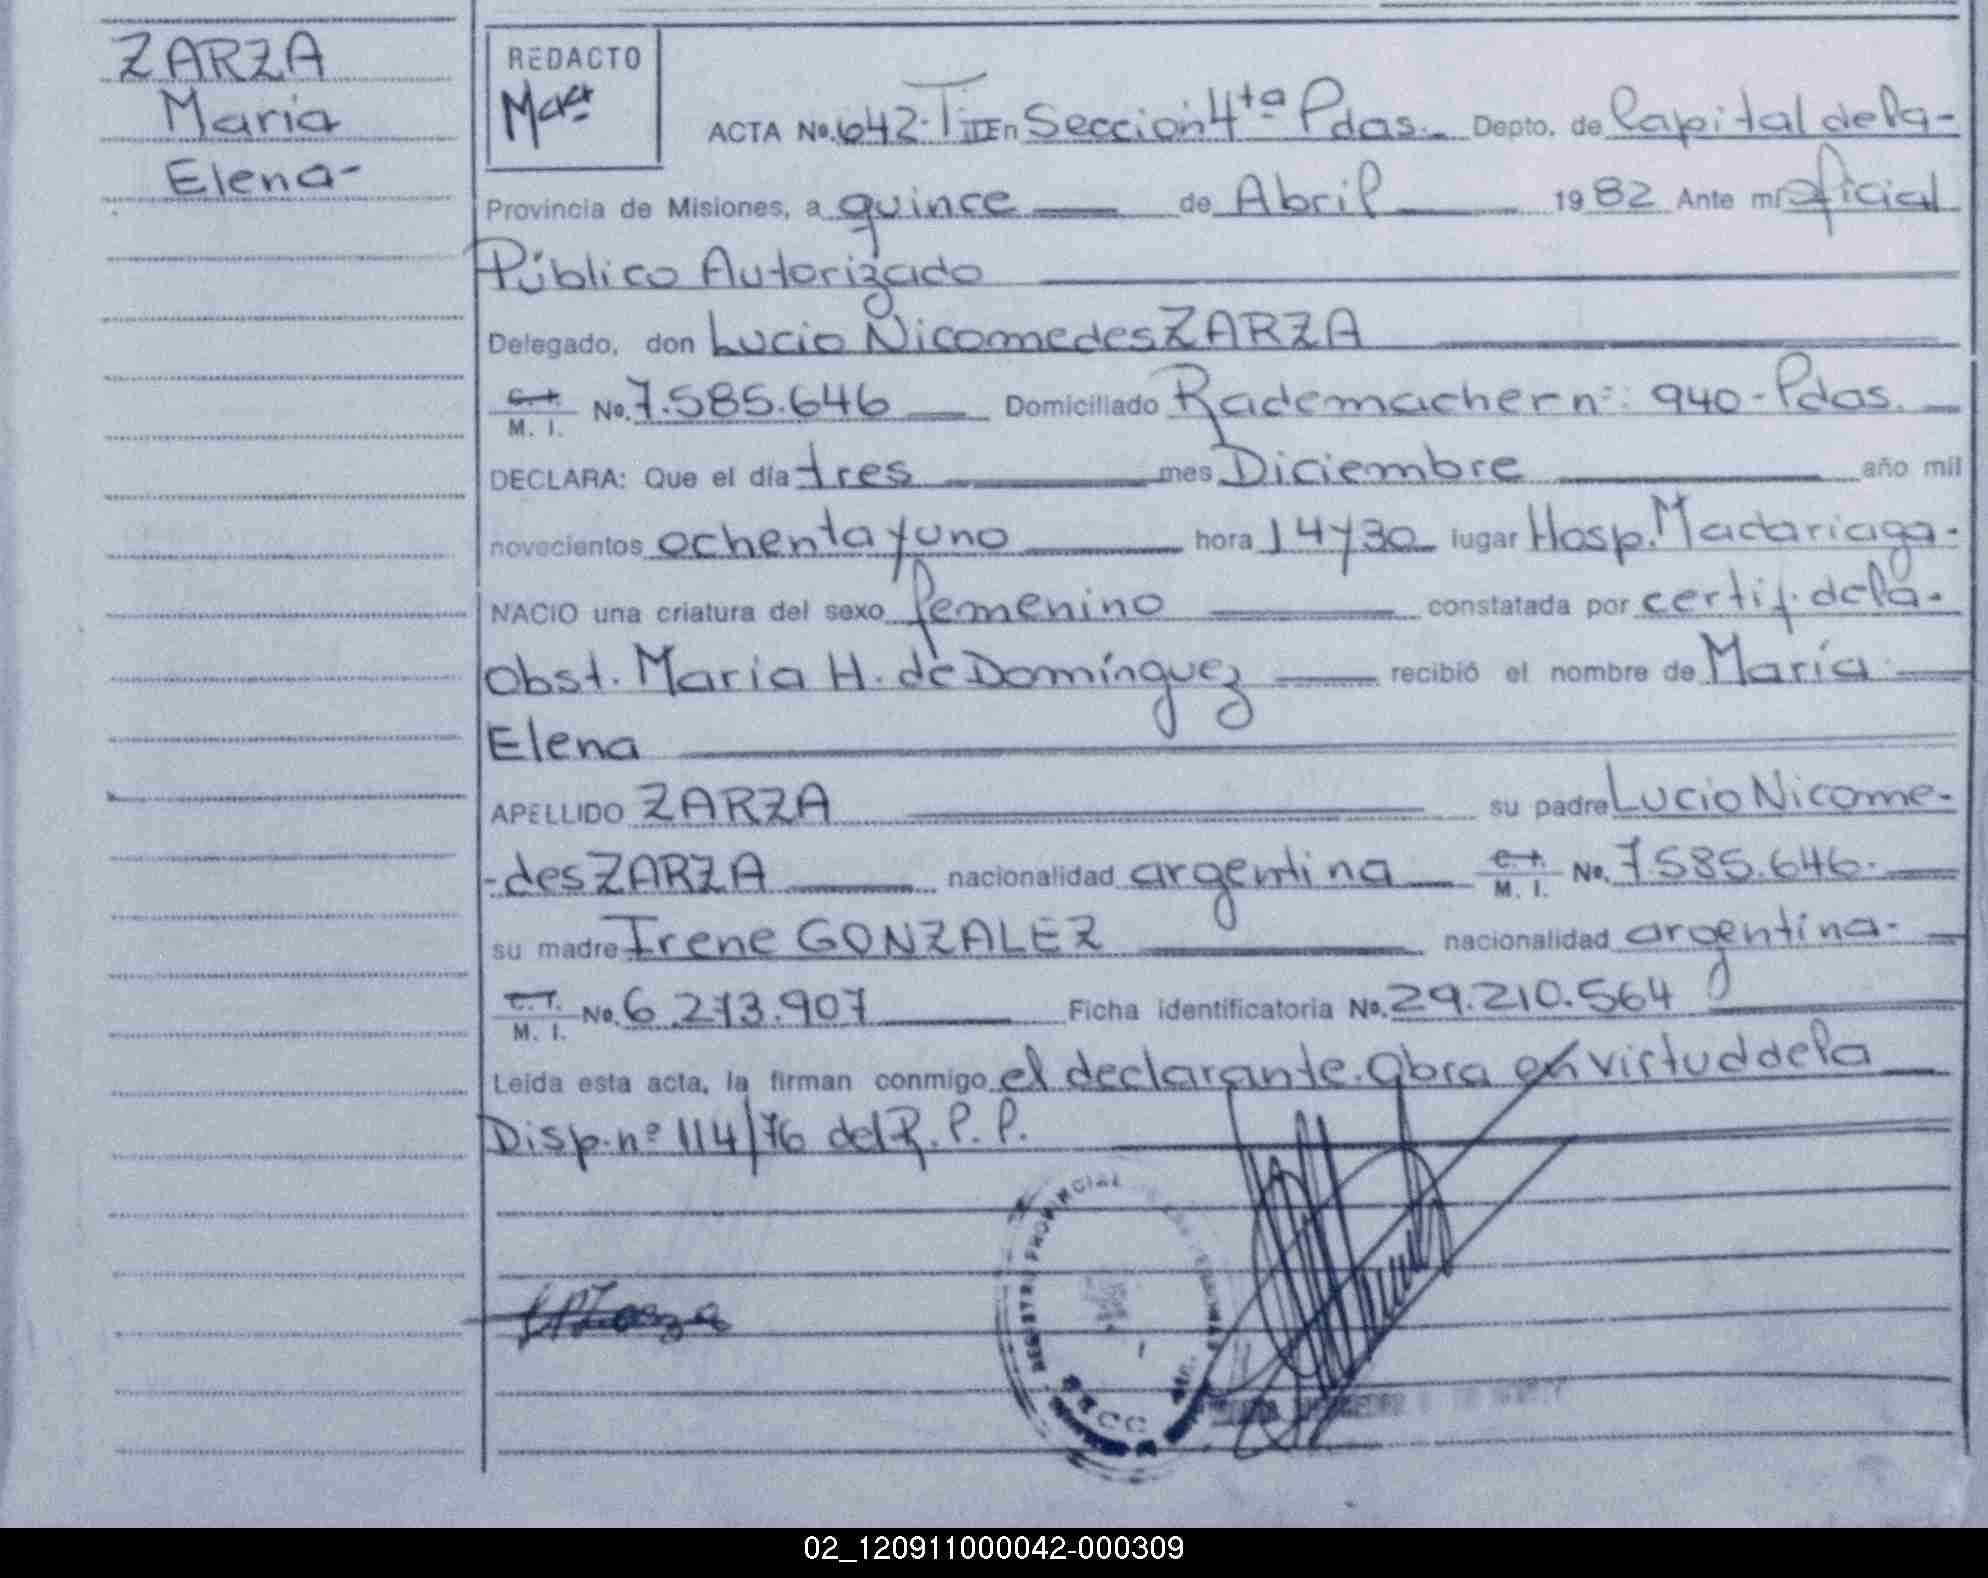 ZARZA
María
Elena-
REDACTO
ACTA No. 642-T III En Sección 4ta Pdas. Depto. de Capital de la-
Provincia de Misiones, a quince de Abril 1982 Ante mí oficial
Público Autorizado
Delegado, don Lucio Nicomedes ZARZA
C. I. M. I. No. 7.585.646 Domiciliado Rademacher nº: 940-Pdas.
DECLARA: Que el día tres mes Diciembre año mil
novecientos ochenta y uno hora 14y30 lugar Hosp. Madariaga-
NACIO una criatura del sexo femenino constatada por certif. de la-
Obst. María H. de Domínguez recibió el nombre de María
Elena
APELLIDO ZARZA su padre Lucio Nicome-
-des ZARZA nacionalidad argentina C. I. M. I. No. 7.585.646-
su madre Irene GONZALEZ nacionalidad argentina-
C. I. M. I. No. 6.273.907 Ficha identificatoria No. 29.210.564
Leída esta acta, la firman conmigo el declarante. Obra en virtud de la
Disp. nº 114/76 del R. P. P.
REGISTRO PROVINCIAL
02_120911000042-000309